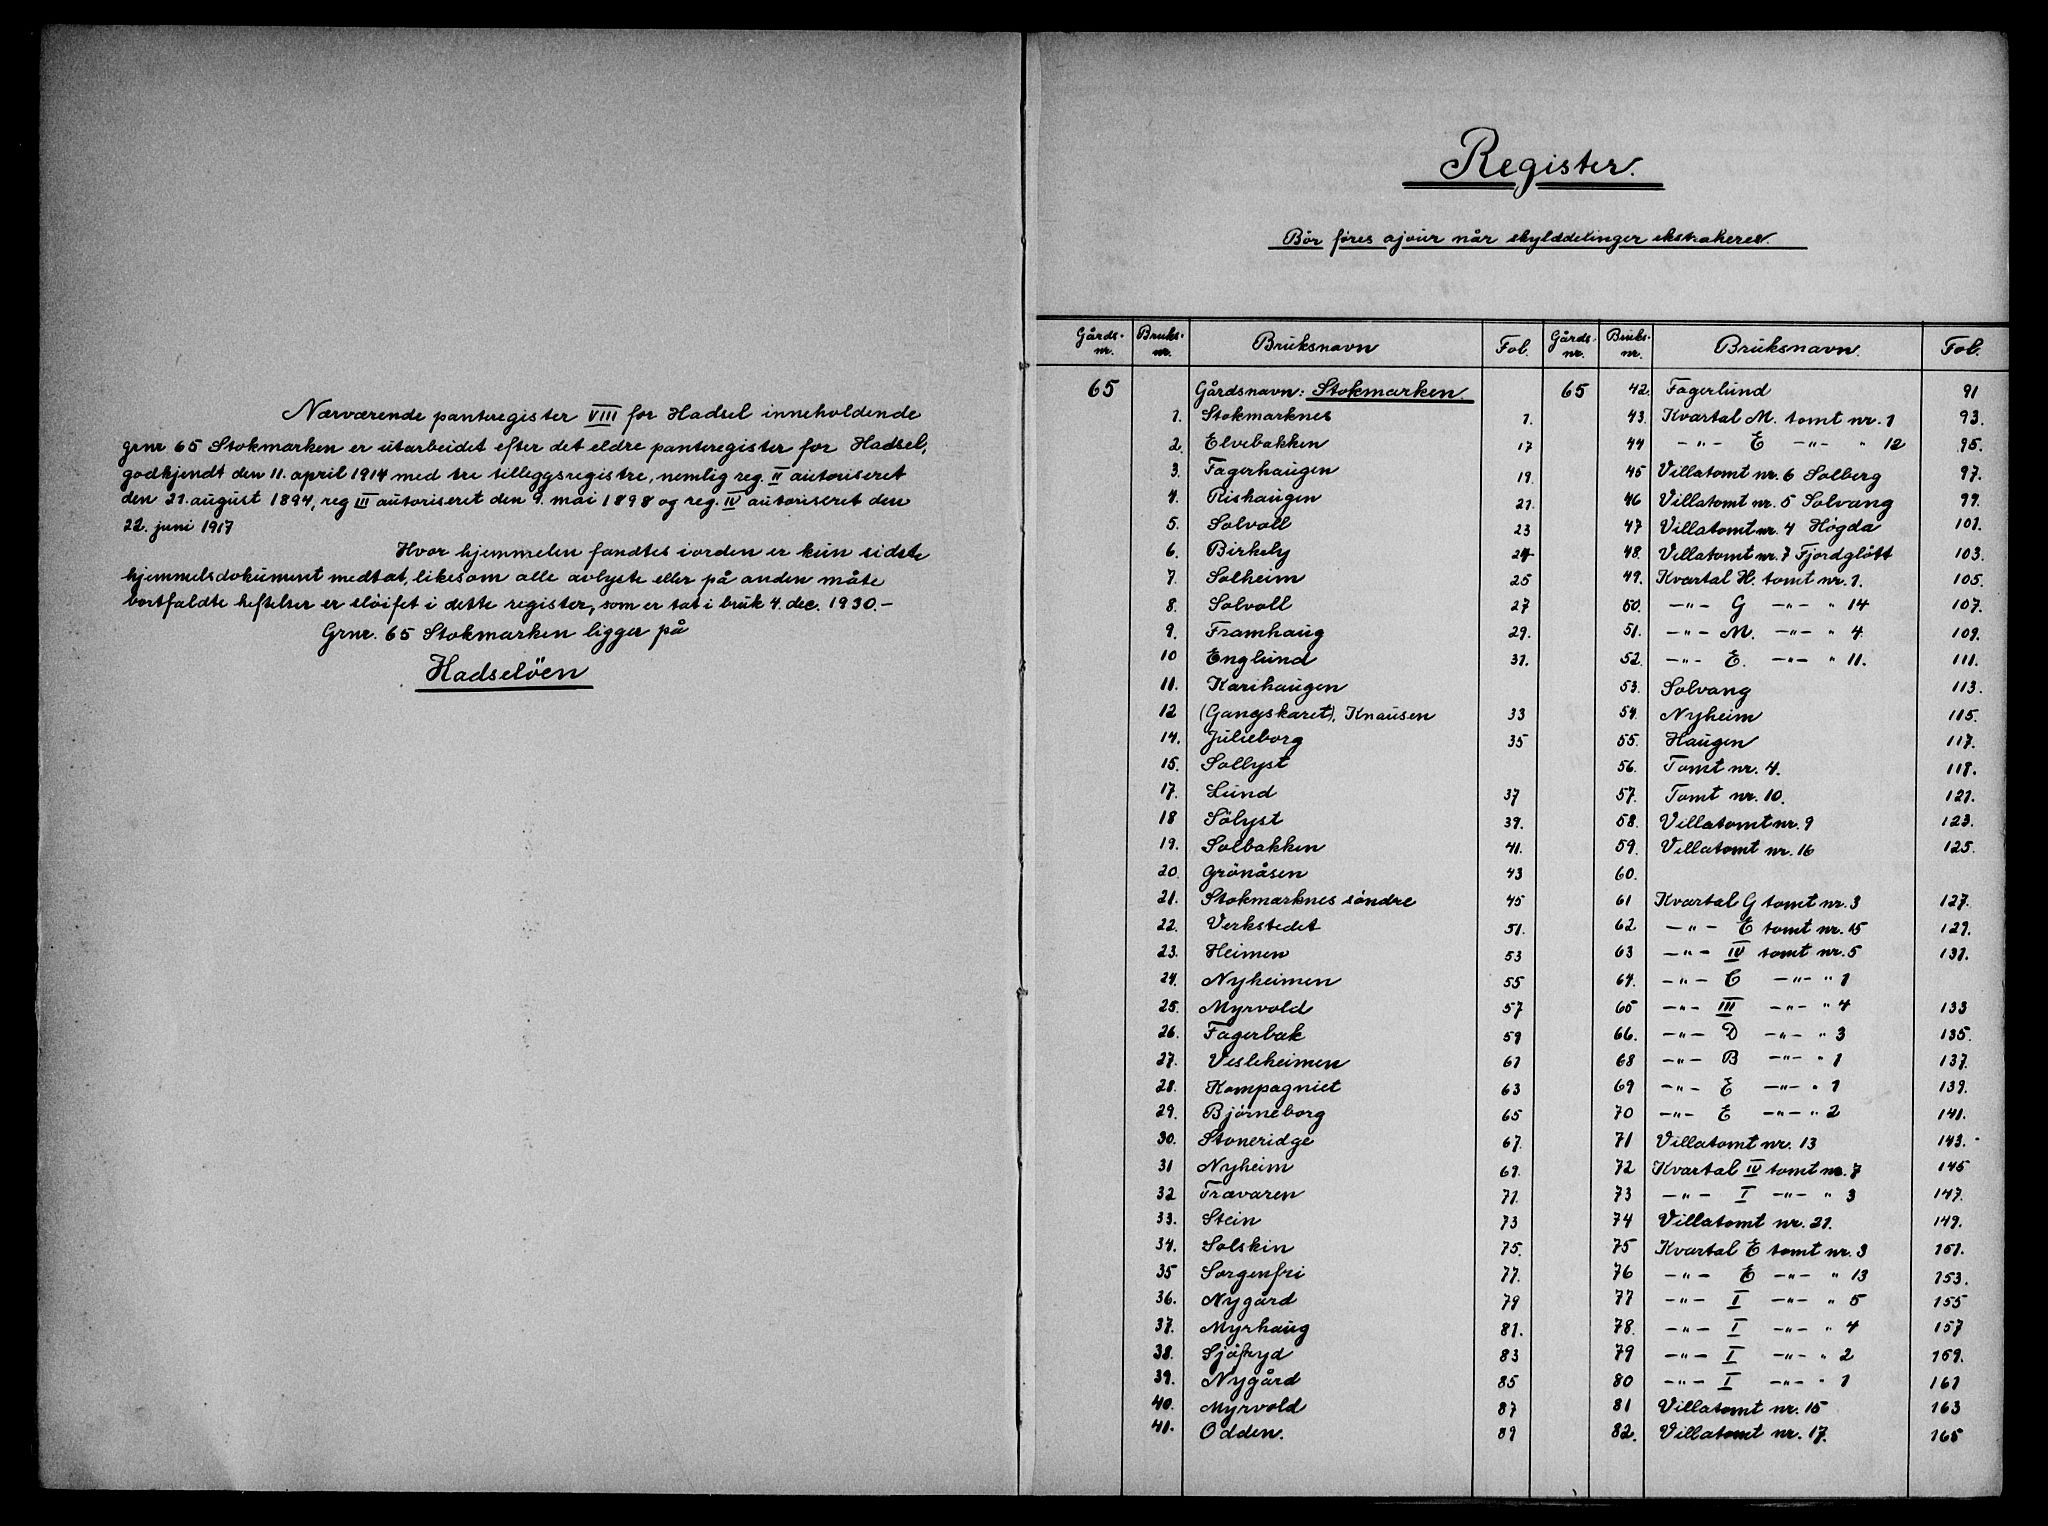 Nærværende panteregister VIII for Hadsel inneholdende
grnr 65 Stokmarken er utarbeidet efter det eldre panteregister for Hadsel,
godkjendt den 11. april 1914 med tre tilleggsregistre, nemlig reg. II autoriseret
den 21. august 1894, reg III autoriseret den 9. mai 1898 og reg. IV autoriseret den
22. juni 1917
Hvor hjemmelen fandtes iorden er kun sidste
hjemmelsdokument medtat, likesom alle avlyste eller på anden måte
bortfaldte heftelser er sløifet i dette register, som er tat i bruk 4. dec. 1930.-
Grnr. 65 Stokmarken ligger på
Hadselöen
Register.
Bör føres ajour når skylddelinger ekstraheres.
Gårds-nr. Bruks-nr. Bruksnavn Fol. Gårds-nr. Bruks-nr. Bruksnavn. Fol.
65 Gårdsnavn: Stokmarken
1. Stokmarknes 1.
2. Elvebakken 17
3. Fagerhaugen 19.
4. Rishaugen 21.
5. Solvoll 23
6. Birkely 24
7. Solheim 25
8. Solvoll 27
9. Framhaug 29.
10 Englund 31.
11. Karihaugen
12 (Gangskaret), Knausen 33
14. Julieborg 35
15. Sollyst
17. Lund 37
18 Sölyst 39.
19. Solbakken 41.
20. Grönåsen 43
21. Stokmarknes søndre 45
22. Verkstedet 51.
23. Heimen 53
24. Nyheimen 55
25. Myrvold 57
26. Fagerbak 59
27. Vesleheimen 61
28. Kompagniet 63
29. Bjørneborg 65
30. Stoneridge 67.
31 Nyheim 69.
32 Trævaren 71.
33. Stein 73
34. Solskin 75.
35 Sorgenfri 77.
36. Nygård 79
37. Myrhaug 81.
38. Sjöfryd 83
39. Nygård 85
40. Myrvold 87
41. Odden. 89
65 42. Fagerlund 91
43. Kvartal M. tomt nr. 1 93.
44 -"- E -"- " 12 95.
45 Villatomt nr. 6 Solberg 97.
46 Villatomt nr. 5 Solvang 99.
47 Villatomt nr. 4 Høgda 101.
48. Villatomt nr. 7 Fjordglött 103.
49. Kvartal H. tomt nr. 1. 105.
50. -"- G -"- " 14 107.
51. -"- M. -"- " 4 109.
52. -"- E. -"- " 11. 111.
53. Solvang 113.
54. Nyheim 115.
55. Haugen 117.
56. Tomt nr. 4. 119.
57. Tomt nr. 10. 121.
58. Villatomt nr. 9 123.
59. Villatomt nr. 16 125.
60.
61 Kvartal G tomt nr. 3 127.
62 -"- E tomt nr. 15 129.
63 -"- IV tomt nr. 5 131.
64. -"- C -"- " 1
65 -"- III -"- " 4 133
66. -"- D -"- " 3 135.
68 -"- B -"- " 1 137.
69 -"- E -"- " 1 139.
70 -"- E -"- " 2 141.
71 Villatomt nr. 13 143.
72 Kvartal IV tomt nr. 7 145
73 -"- I -"- " 3 147.
74 Villatomt nr. 21. 149.
75 Kvartal E tomt nr. 3 151.
76 -"- E -"- " 13 153.
77 -"- I -"- " 5 155
78. -"- I -"- " 4 157
79 -"- I -"- " 2 159.
80 -"- I -"- " 1 161
81 Villatomt nr. 15 163
82. Villatomt nr. 17. 165